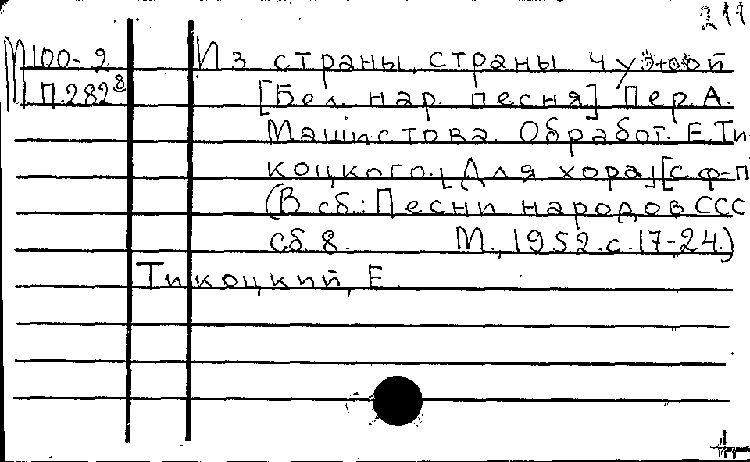 211
М100-2 Из страны, страны чужой
П.282⁸ [Бел. нар. песня] Пер. А.
Машистова. Обработ. Е. Ти-
коцкого. [Для хора] [с ф-п
(В сб.: Песни народов ССС
сб 8. М., 1952. с. 17-24.)
Тикоцкий, Е.